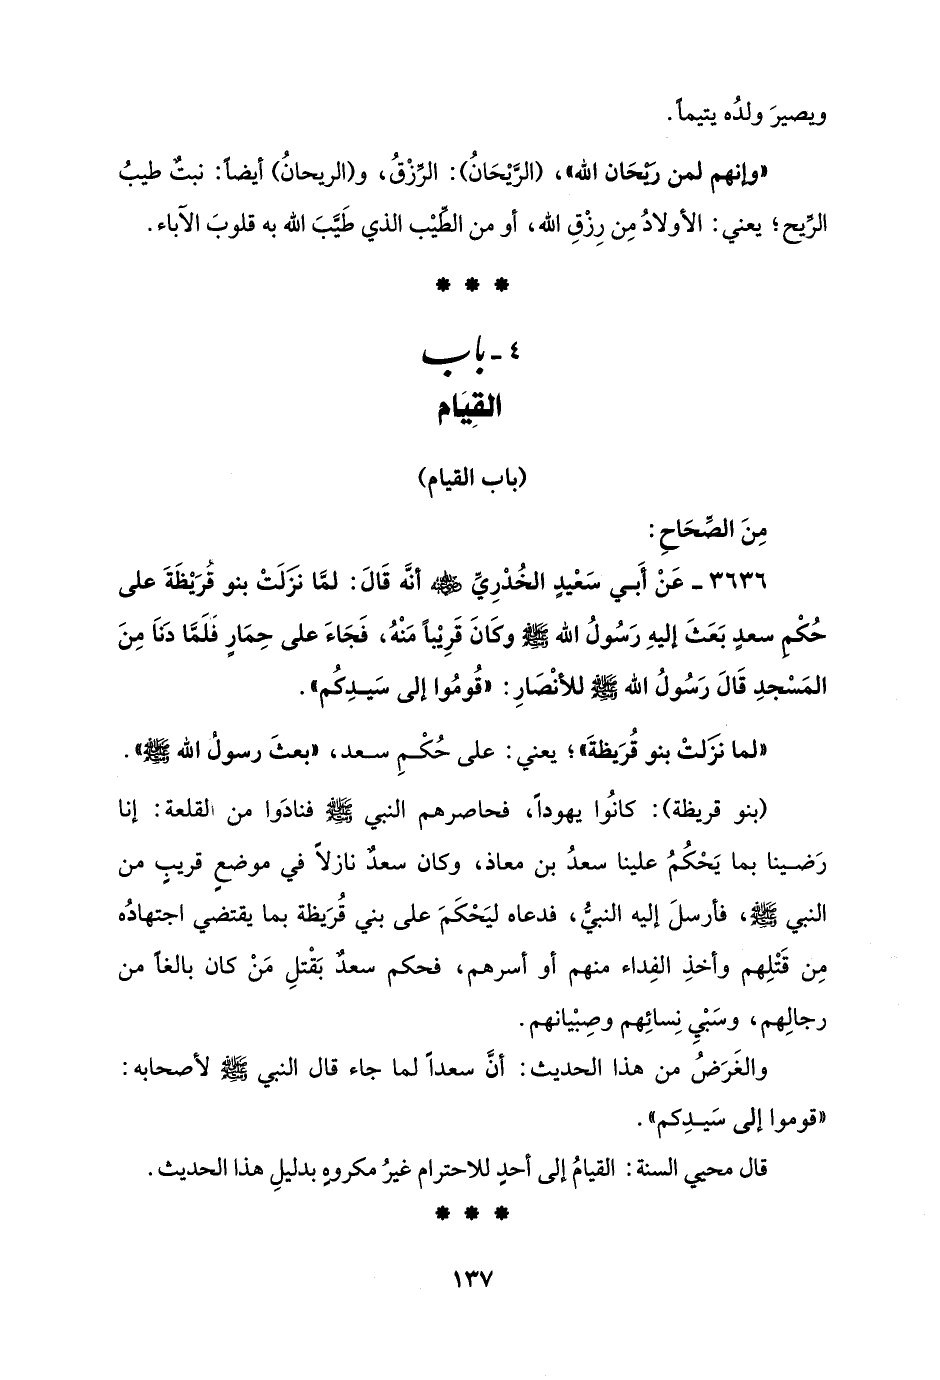 ويصيرَ ولدُه يتيماً.
«وإنهم لمن رَيْحَان الله»، (الرَّيْحَانُ): الرِّزْقُ، و(الريحانُ) أيضاً: نبتٌ طيبُ
الرِّيح؛ يعني: الأولادُ مِن رِزْقِ الله، أو من الطِّيْب الذي طَيَّبَ الله به قلوبَ الآباء.
* * *
٤ - باب
القِيَام
(باب القيام)
مِنَ الصِّحَاحِ:
٣٦٣٦ - عَنْ أَبي سَعْيِدٍ الخُدْرِيِّ ﵁ أنَّه قَالَ: لمَّا نزَلَتْ بنو قُرَيْظَةَ على
حُكْمِ سعدٍ بَعَثَ إليهِ رَسُولُ الله ﷺ وكَانَ قَرِيْباً مَنْهُ، فَجَاءَ على حِمَارٍ فَلَمَّا دَنَا مِنَ
المَسْجدِ قَالَ رَسُولُ الله ﷺ للأنْصَارِ: «قُومُوا إلى سَيدِكُم».
«لما نزَلتْ بنو قُرَيظةَ»؛ يعني: على حُكْمِ سعد، «بعثَ رسولُ الله ﷺ».
(بنو قريظة): كانُوا يهوداً، فحاصرهم النبي ﷺ فنادَوا من القلعة: إنا
رَضينا بما يَحْكُمُ علينا سعدُ بن معاذ، وكان سعدٌ نازلاً في موضعٍ قريبٍ من
النبي ﷺ، فأرسلَ إليه النبيُّ، فدعاه ليَحْكَمَ على بني قُرَيظة بما يقتضي اجتهادُه
مِن قَتْلِهم وأخذِ الفِداء منهم أو أسرهم، فحكم سعدٌ بَقْتلِ مَنْ كان بالغاً من
رجالِهم، وسَبْيِ نِسائِهم وصِبْيانهم.
والغَرَضُ من هذا الحديث: أنَّ سعداً لما جاء قال النبي ﷺ لأصحابه:
«قوموا إلى سَيدِكم».
قال محيي السنة: القيامُ إلى أحدٍ للاحترام غيرُ مكروهٍ بدليلِ هذا الحديث.
* * *
١٣٧